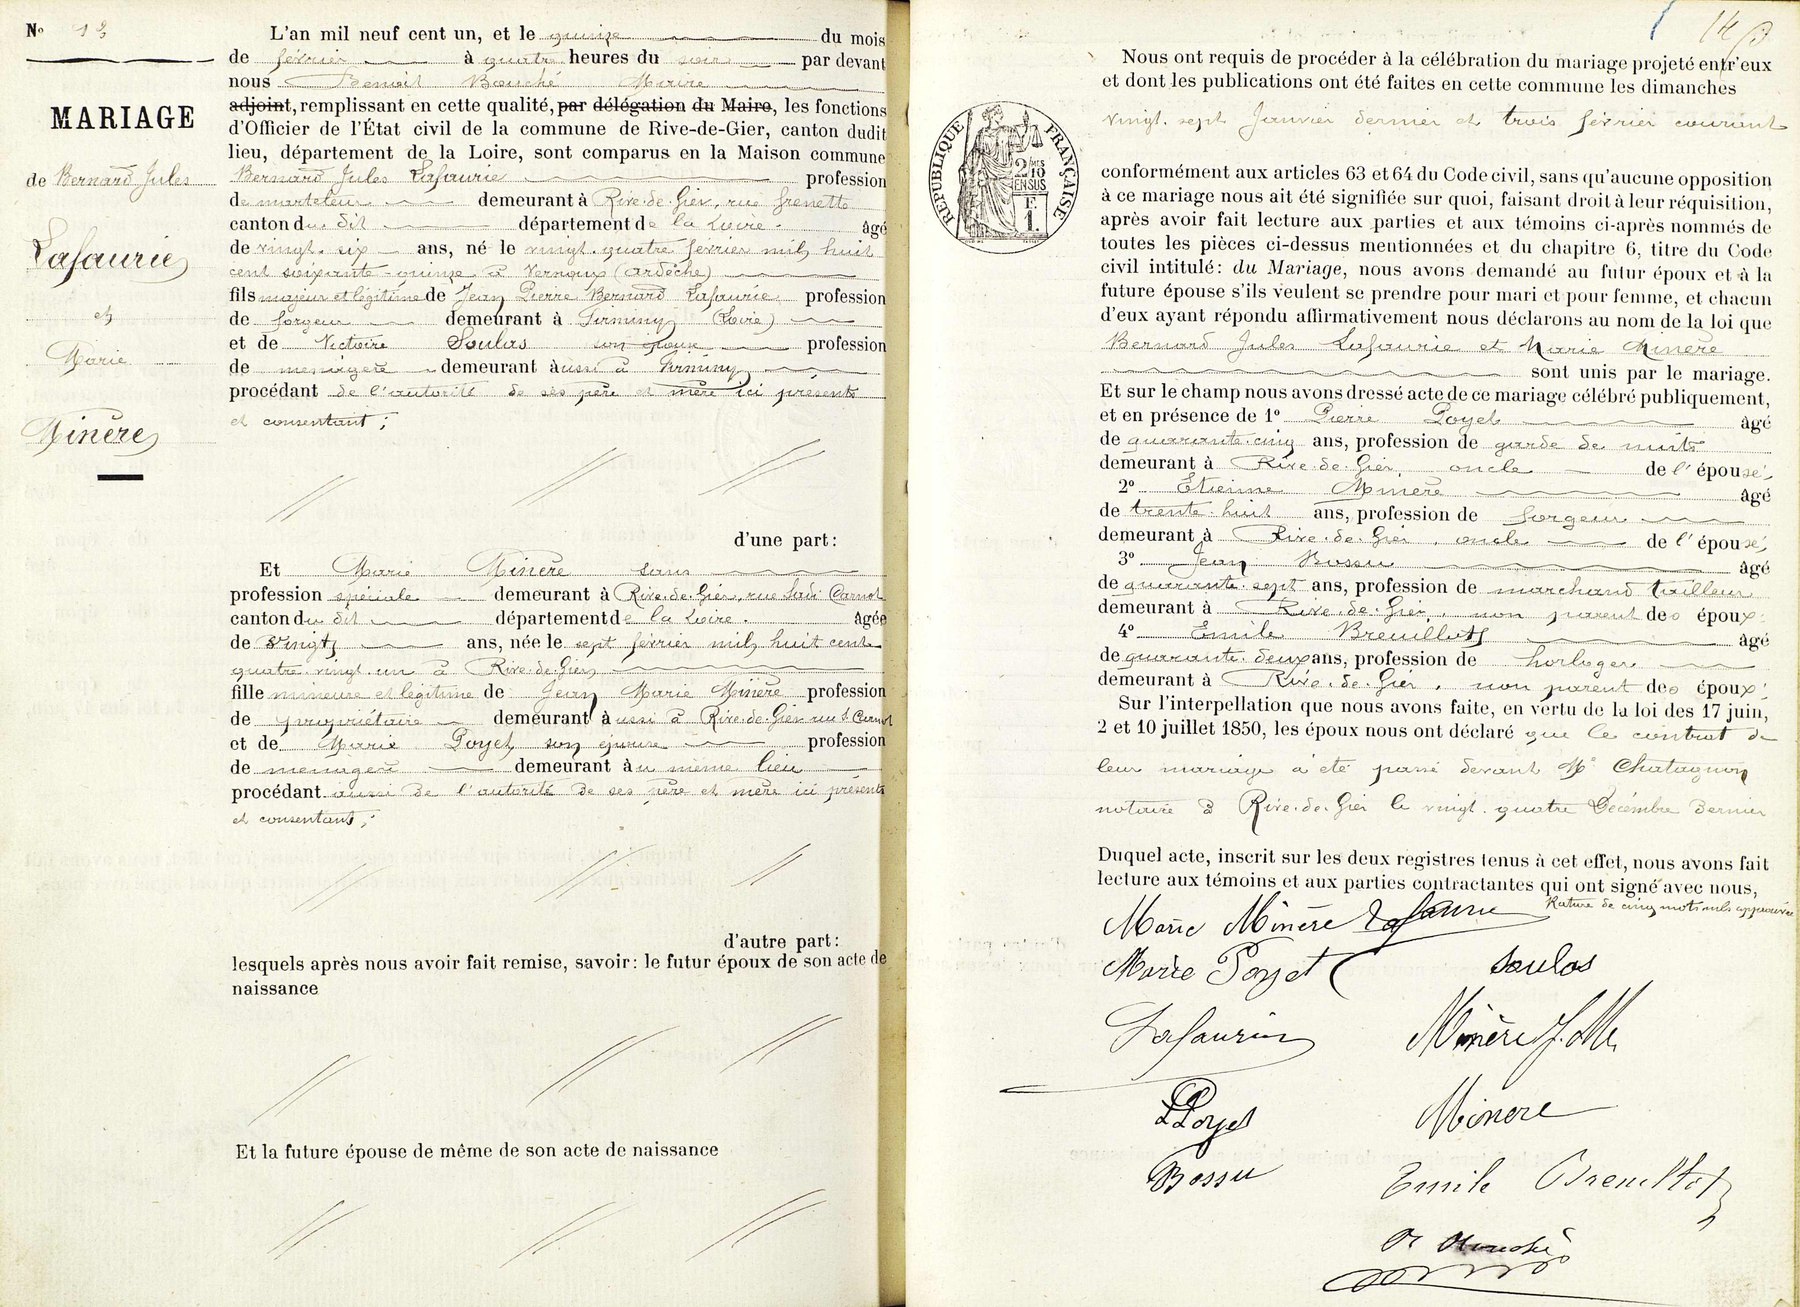 No 13
MARIAGE
de Bernard Jules
Lafaurie
et
Marie
Minère
L'an mil neuf cent un, et le quinze du mois
de février à quatre heures du soir par devant
nous Benoit Bouché Maire
adjoint, remplissant en cette qualité, par délégation du Maire, les fonctions
d'Officier de l'État civil de la commune de Rive-de-Gier, canton dudit
lieu, département de la Loire, sont comparus en la Maison commune
Bernard Jules Lafaurie profession
de marteleur demeurant à Rive-de-Gier, rue Grenette
canton du dit département de la Loire. âgé
de vingt-six ans, né le vingt-quatre février mil huit
cent soixante-quinze à Vernoux (Ardèche)
fils majeur et légitime de Jean Pierre Bernard Lafaurie profession
de forgeur demeurant à Firminy (Loire)
et de Victoire Soulas son épouse profession
de ménagère demeurant aussi à Firminy
procédant de l'autorité de ses père et mère ici présents
et consentant;
d'une part:
Et Marie Minère sans
profession spéciale demeurant à Rive-de-Gier, rue Sadi Carnot
canton du dit département de la Loire. âgée
de vingt ans, née le sept février mil huit cent
quatre-vingt-un à Rive-de-Gier
fille mineure et légitime de Jean Marie Minère profession
de propriétaire demeurant aussi à Rive-de-Gier rue S. Carnot
et de Marie Poyet son épouse profession
de ménagère demeurant au même lieu
procédant aussi de l'autorité de ses père et mère ici présents
et consentants;
d'autre part:
lesquels après nous avoir fait remise, savoir: le futur époux de son acte de
naissance
Et la future épouse de même de son acte de naissance
14
Nous ont requis de procéder à la célébration du mariage projeté entr'eux
et dont les publications ont été faites en cette commune les dimanches
vingt-sept Janvier dernier et trois février courant
RÉPUBLIQUE FRANÇAISE
2/10 EN SUS
F. 1.
conformément aux articles 63 et 64 du Code civil, sans qu'aucune opposition
à ce mariage nous ait été signifiée sur quoi, faisant droit à leur réquisition,
après avoir fait lecture aux parties et aux témoins ci-après nommés de
toutes les pièces ci-dessus mentionnées et du chapitre 6, titre du Code
civil intitulé: du Mariage, nous avons demandé au futur époux et à la
future épouse s'ils veulent se prendre pour mari et pour femme, et chacun
d'eux ayant répondu affirmativement nous déclarons au nom de la loi que
Bernard Jules Lafaurie et Marie Minère
sont unis par le mariage.
Et sur le champ nous avons dressé acte de ce mariage célébré publiquement,
et en présence de 1o Pierre Poyet âgé
de quarante-cinq ans, profession de garde de nuits
demeurant à Rive-de-Gier, oncle de l'épouse;
2o Etienne Minère âgé
de trente-huit ans, profession de forgeur
demeurant à Rive-de-Gier, oncle de l'épouse;
3o Jean Bossu âgé
de quarante-sept ans, profession de marchand tailleur
demeurant à Rive-de-Gier, non parent des époux;
4o Emile Breuillot âgé
de quarante-deux ans, profession de horloger
demeurant à Rive-de-Gier, non parent des époux;
Sur l'interpellation que nous avons faite, en vertu de la loi des 17 juin,
2 et 10 juillet 1850, les époux nous ont déclaré que le contrat de
leur mariage a été passé devant Me Chatagnon
notaire à Rive-de-Gier le vingt-quatre Décembre dernier
Duquel acte, inscrit sur les deux registres tenus à cet effet, nous avons fait
lecture aux témoins et aux parties contractantes qui ont signé avec nous,
Rature de cinq mots nuls approuvée
Marie Minère Lafaurie
Marie Poyet Soulas
Lafaurie Minère J. M.
Poyet Minère
Bossu Emile Breuillot
Bouché